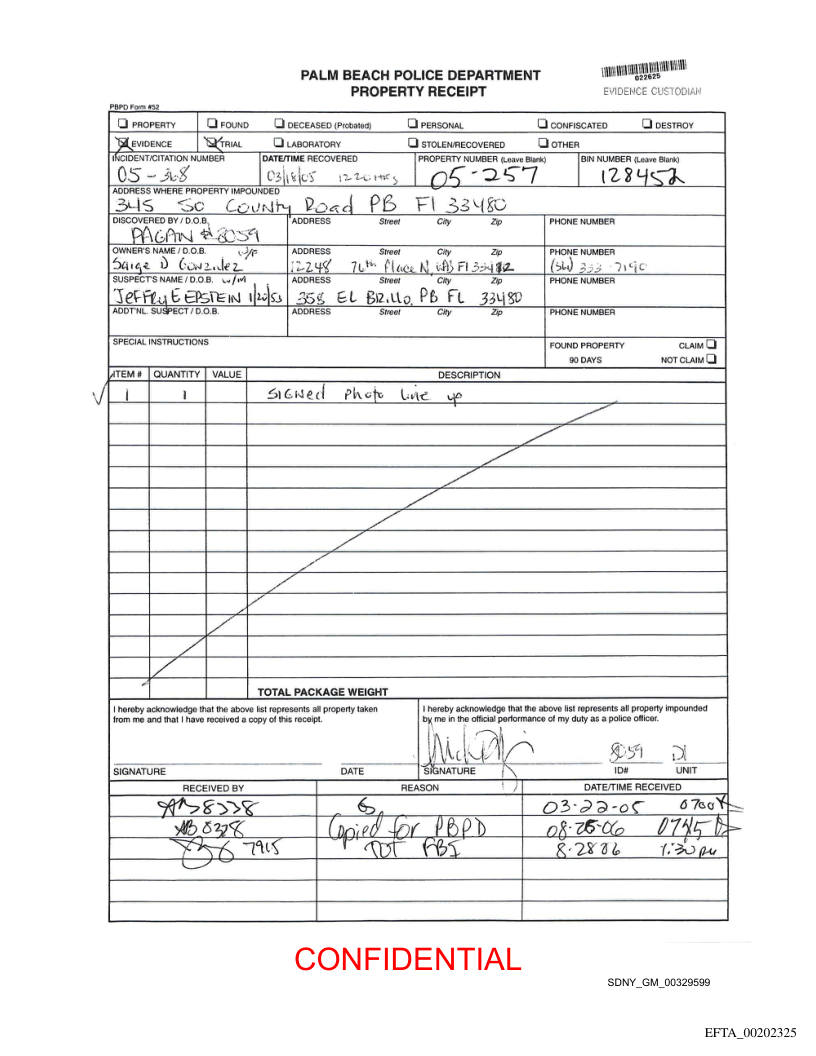 PALM BEACH POLICE DEPARTMENT
PROPERTY RECEIPT
022625
EVIDENCE CUSTODIAN
PBPD Form #52
PROPERTY FOUND DECEASED (Probated) PERSONAL CONFISCATED DESTROY
EVIDENCE TRIAL LABORATORY STOLEN/RECOVERED OTHER
INCIDENT/CITATION NUMBER DATE/TIME RECOVERED PROPERTY NUMBER (Leave Blank) BIN NUMBER (Leave Blank)
05-368 03/18/05 1220 hrs 05-257 128452
ADDRESS WHERE PROPERTY IMPOUNDED
345 So County Road PB Fl 33480
DISCOVERED BY / D.O.B. ADDRESS Street City Zip PHONE NUMBER
PAGAN #8059
OWNER'S NAME / D.O.B. ADDRESS Street City Zip PHONE NUMBER
D Gonzalez 12248 76th Place N, Fl (561) 333-7190
SUSPECT'S NAME / D.O.B. w/m ADDRESS Street City Zip PHONE NUMBER
JEFFRy E EPSTEIN 1/20/53 358 EL BRillo, PB FL 33480
ADDT'NL. SUSPECT / D.O.B. ADDRESS Street City Zip PHONE NUMBER
SPECIAL INSTRUCTIONS
FOUND PROPERTY CLAIM
90 DAYS NOT CLAIM
ITEM # QUANTITY VALUE DESCRIPTION
1 1 SIGNed Photo line up
TOTAL PACKAGE WEIGHT
I hereby acknowledge that the above list represents all property taken
from me and that I have received a copy of this receipt.
I hereby acknowledge that the above list represents all property impounded
by me in the official performance of my duty as a police officer.
8059 DI
SIGNATURE DATE SIGNATURE ID# UNIT
RECEIVED BY REASON DATE/TIME RECEIVED
03-22-05 0700
8328 Copied for PBPD 08-25-06 0745
7915 TOT FBI 8-28 06 1:30 pm
CONFIDENTIAL
SDNY_GM_00329599
EFTA_00202325